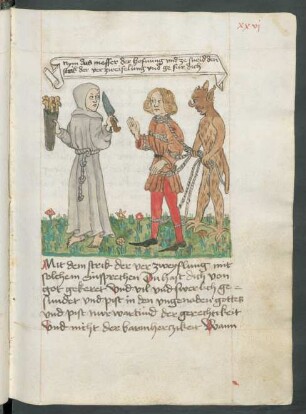 xxvi
Nym das messer der hofnung und zesneid den
strik der verzweifelung und ge für dich
Mit dem strik der verzweyflung mit
solchem Einsprechen du hast dich von
got gekeret Und vil und swerlich ge
sundet Und pist in den ungenaden gottes
und pist nur wartund der gerechtikeit
Und nicht der barmherczikeit Wann